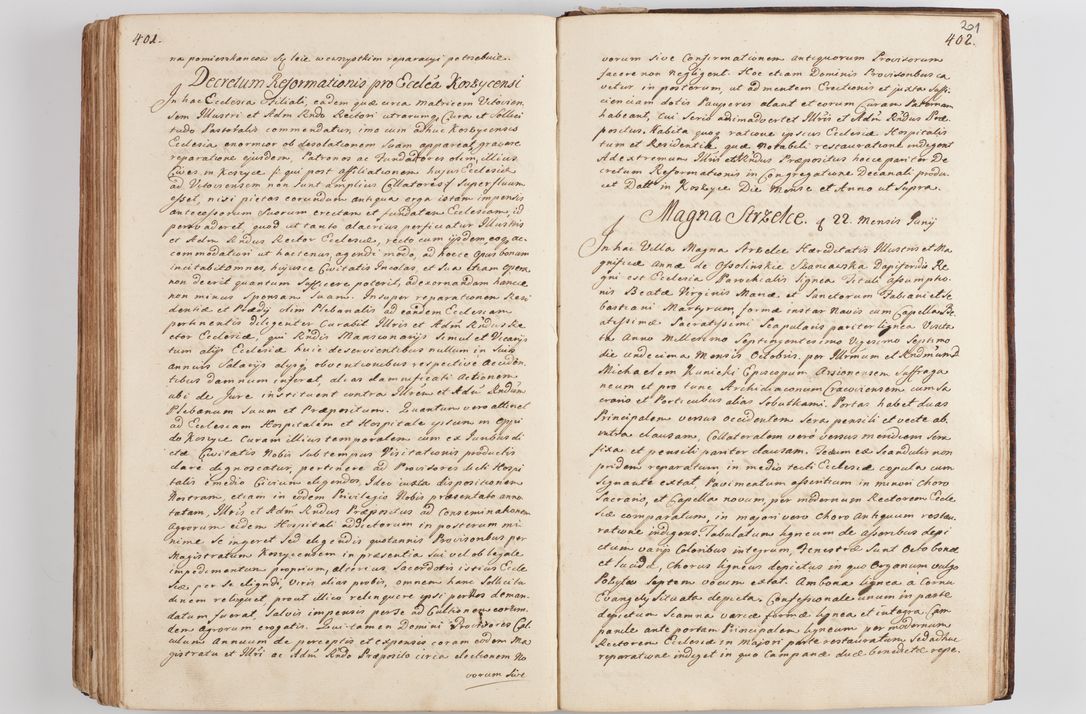 401.
na pomieszkanców Są boie, w czwystkim reparacyi potrzebuie.
Decretum Reformationis pro Ecclêa Koszycensi
In hac Ecclesia Filiali, eadem quæ circa matricem Witovien,
sem Illustri et Adm Rndo Rectori utrarumq; Cura et Sollici
tudo Pastoralis commendatur, imo cum adhuc Koszycensis
Ecclesia enormior ob desolationem Suam appareat, graviore
reparatione ejusdem, Patronos ac Fundatores olim illius
Cives in Koszyce
ad Vitoviensem non sunt amplius Collatores superfluum
esset, nisi pietas eorundem antiqua erga istam impensis
antecessorum Suorum erectam et fundatam Ecclesiam, id
persvaderet, quod ut tanto alacrius perficiatur Illustris
et Adm Rndus Rector Ecclesiæ, recto cum ijsdem, eoq; ac,
commodatiori ut hactenus, agendi modo, ad hocce opus bonum
incitabit omnes, hujusce Civitatis Incolas, et Sua etiam opera
non deerit quantum Sufficere poterit, ad exornandam hancce
non minus Sponsam Suam. Insuper reparationem Resi
dentiæ et Prædij olim Plebanalis ad eandem Ecclesiam
pertinentis diligenter Curabit Illtris et Adm Rndus Re
ctor Ecclesiæ, qui Rndis Mansionarijs Simul et Vicarijs
tum alijs Ecclesiæ huic deservientibus nullum in Suis
annuis Salarijs alijsq; obventionibus respective Acciden,
tibus damnum inferat, alias damnificati Actionem
ubi de Jure instituent contra Illtrem et Adm Rndum
Plebanum Suum et Præpositum. Quantum vero attinet
ad Ecclesiam Hospitalem et Hospitale ipsum in Oppi
do Koszyce Curam illius temporalem cum ex Juribus di
ctæ Civitatis Nobis Sub tempus Visitationis productis
clare dignoscatur, pertinere ad Provisores dicti Hospi
talis e medio Civium eligendos, Ideo juxta dispositionem
Nostram, etiam in eodem Privilegio Nobis præsentato anno
tatam, Illtris et Adm Rndus Præpositus ad Conseminationem
agrorum eidem Hospitali addictorum in posterum mi
nime se ingeret Sed eligendis quotannis Provisoribus per
Magistratum Koszycensem in præsentia Sui vel ob legale
impedimentum proprium, alterius Sacerdotis istius Eccle
siæ, per Se eligendi, Viris alias probis, omnem hanc Sollicitu
dinem relinquet prout illico relinquere ipsi per Nos deman,
datum fuerat, Salvis impensis per se ad Cultionem eorum,
dem agrorum erogatis. Qui tamen Domini Provisores Cal,
culum Annuum de perceptis et expensis coram eodem Ma
gistratu et Illtri ac Adm Rndo Præposito circa electionem No
vorum Sive
201
402.
vorum Sive Confirmationem antiquorum Provisorum
facere non negligent. Hoc etiam Dominis Provisoribus ca
vetur in posterum, ut ad mentem Erectionis et juxta Suffi
cienciam dotis Pauperes alant et eorum Curam Paternam
habeant, cui Serio animadvertet Illtris et Adm Rndus Præ,
positus. Habita quoq; ratione ipsius Ecclesiæ Hospitalis
tum et Residentiæ quæ Notabili restauratione indigent
Ad extremum Illtris et Rndus Præpositus hocce pariter De
cretum Reformationis in Congregatione Decanali produ,
cet Datt in Koszyce Die Mense et Anno ut Supra.
Magna Strzelce. 22. Mensis Junij
In hac Villa Magna Strzelce Hæreditatis Illustris et Ma
gnificæ Annæ de Ossolinskie Dapiferidis Re
gni est Ecclesia Parochialis lignea Tituli Assumptio
nis Beatæ Virginis Mariæ et Sanctorum Fabiani et Se
bastiani Martyrum, formæ instar Navis cum Capella Be
atissimæ Sacratissimi Scapularis pariter lignea Visita
ta Anno Millesimo Septingentesimo Vigesimo Septimo
die undecima Mensis Octobris, per Illrmum et Rndmum D
Michaelem Kunicki Episcopum Arsionensem Suffraga
neum et pro tunc Archidiaconum Cracoviensem cum Sa
crario et Porticubus alias Sobutkami. Portas habet duas
Principalem versus occidentem Sera pensili et vecte ab,
intra clausam, Collateralem verò versus meridiem Sera
fixa et pensili pariter clausam. Tectum ex Scandulis non
pridem reparatum, in medio tecti Ecclesiæ copula cum
Signante extat, Pavimentum asseritium in minori Choro
Sacrario, et Capella novum per modernum Rectorem Eccle
siæ comparatum, in majori vero Choro antiquum restau,
ratione indigens. Tabulatum ligneum de asseribus depi
ctum varijs Coloribus integrum, Fenestræ Sunt Octo bonæ
et lucidæ, Chorus ligneus depictus in quo Organum vulgo
Pozytew Septem vocum extat. Ambona lignea a Cornu
Evangelij Situata depicta. Confessionale unum in parte
depictum Scamna variæ formæ lignea et integra. Cam
panile ante portam Principalem ligneum per modernum
Rectorem Ecclesiæ in Majori parte restauratum, Sed adhuc
reparatione indiget in quo Campanæ duæ benedictæ repe.